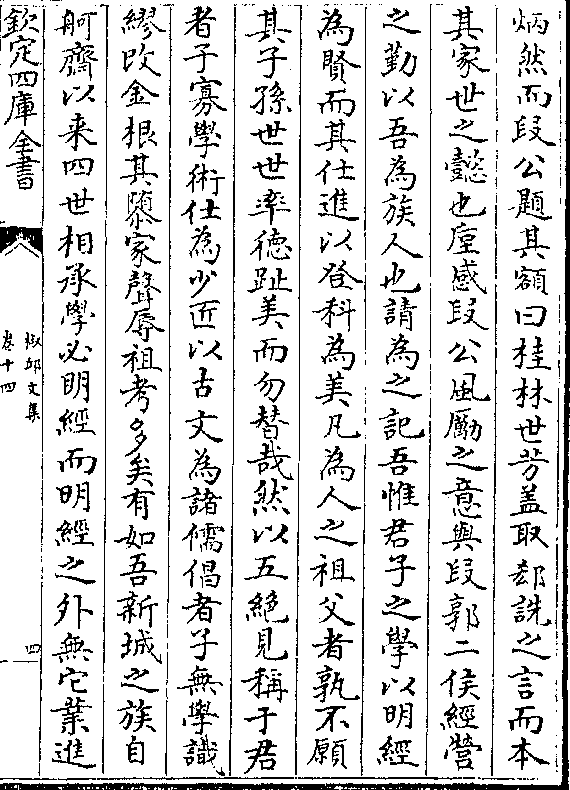 炳然而段公題其額曰桂林世芳盖取郄詵之言而本
其家世之懿也堙感段公風勵之意與段郭二侯經營
之勤以吾為族人也請為之記吾惟君子之學以明經
為賢而其仕進以登科為美凡為人之祖父者孰不願
其子孫世世率德趾美而勿替哉然以五絕見稱于君
者子寡學術仕為少匠以古文為諸儒倡者子無學識
繆改金根其隳家聲辱祖考多矣有如吾新城之族自
舸齋以来四世相承學必明經而明經之外無它業進
欽定四庫全書
椒邱文集
卷十四
四